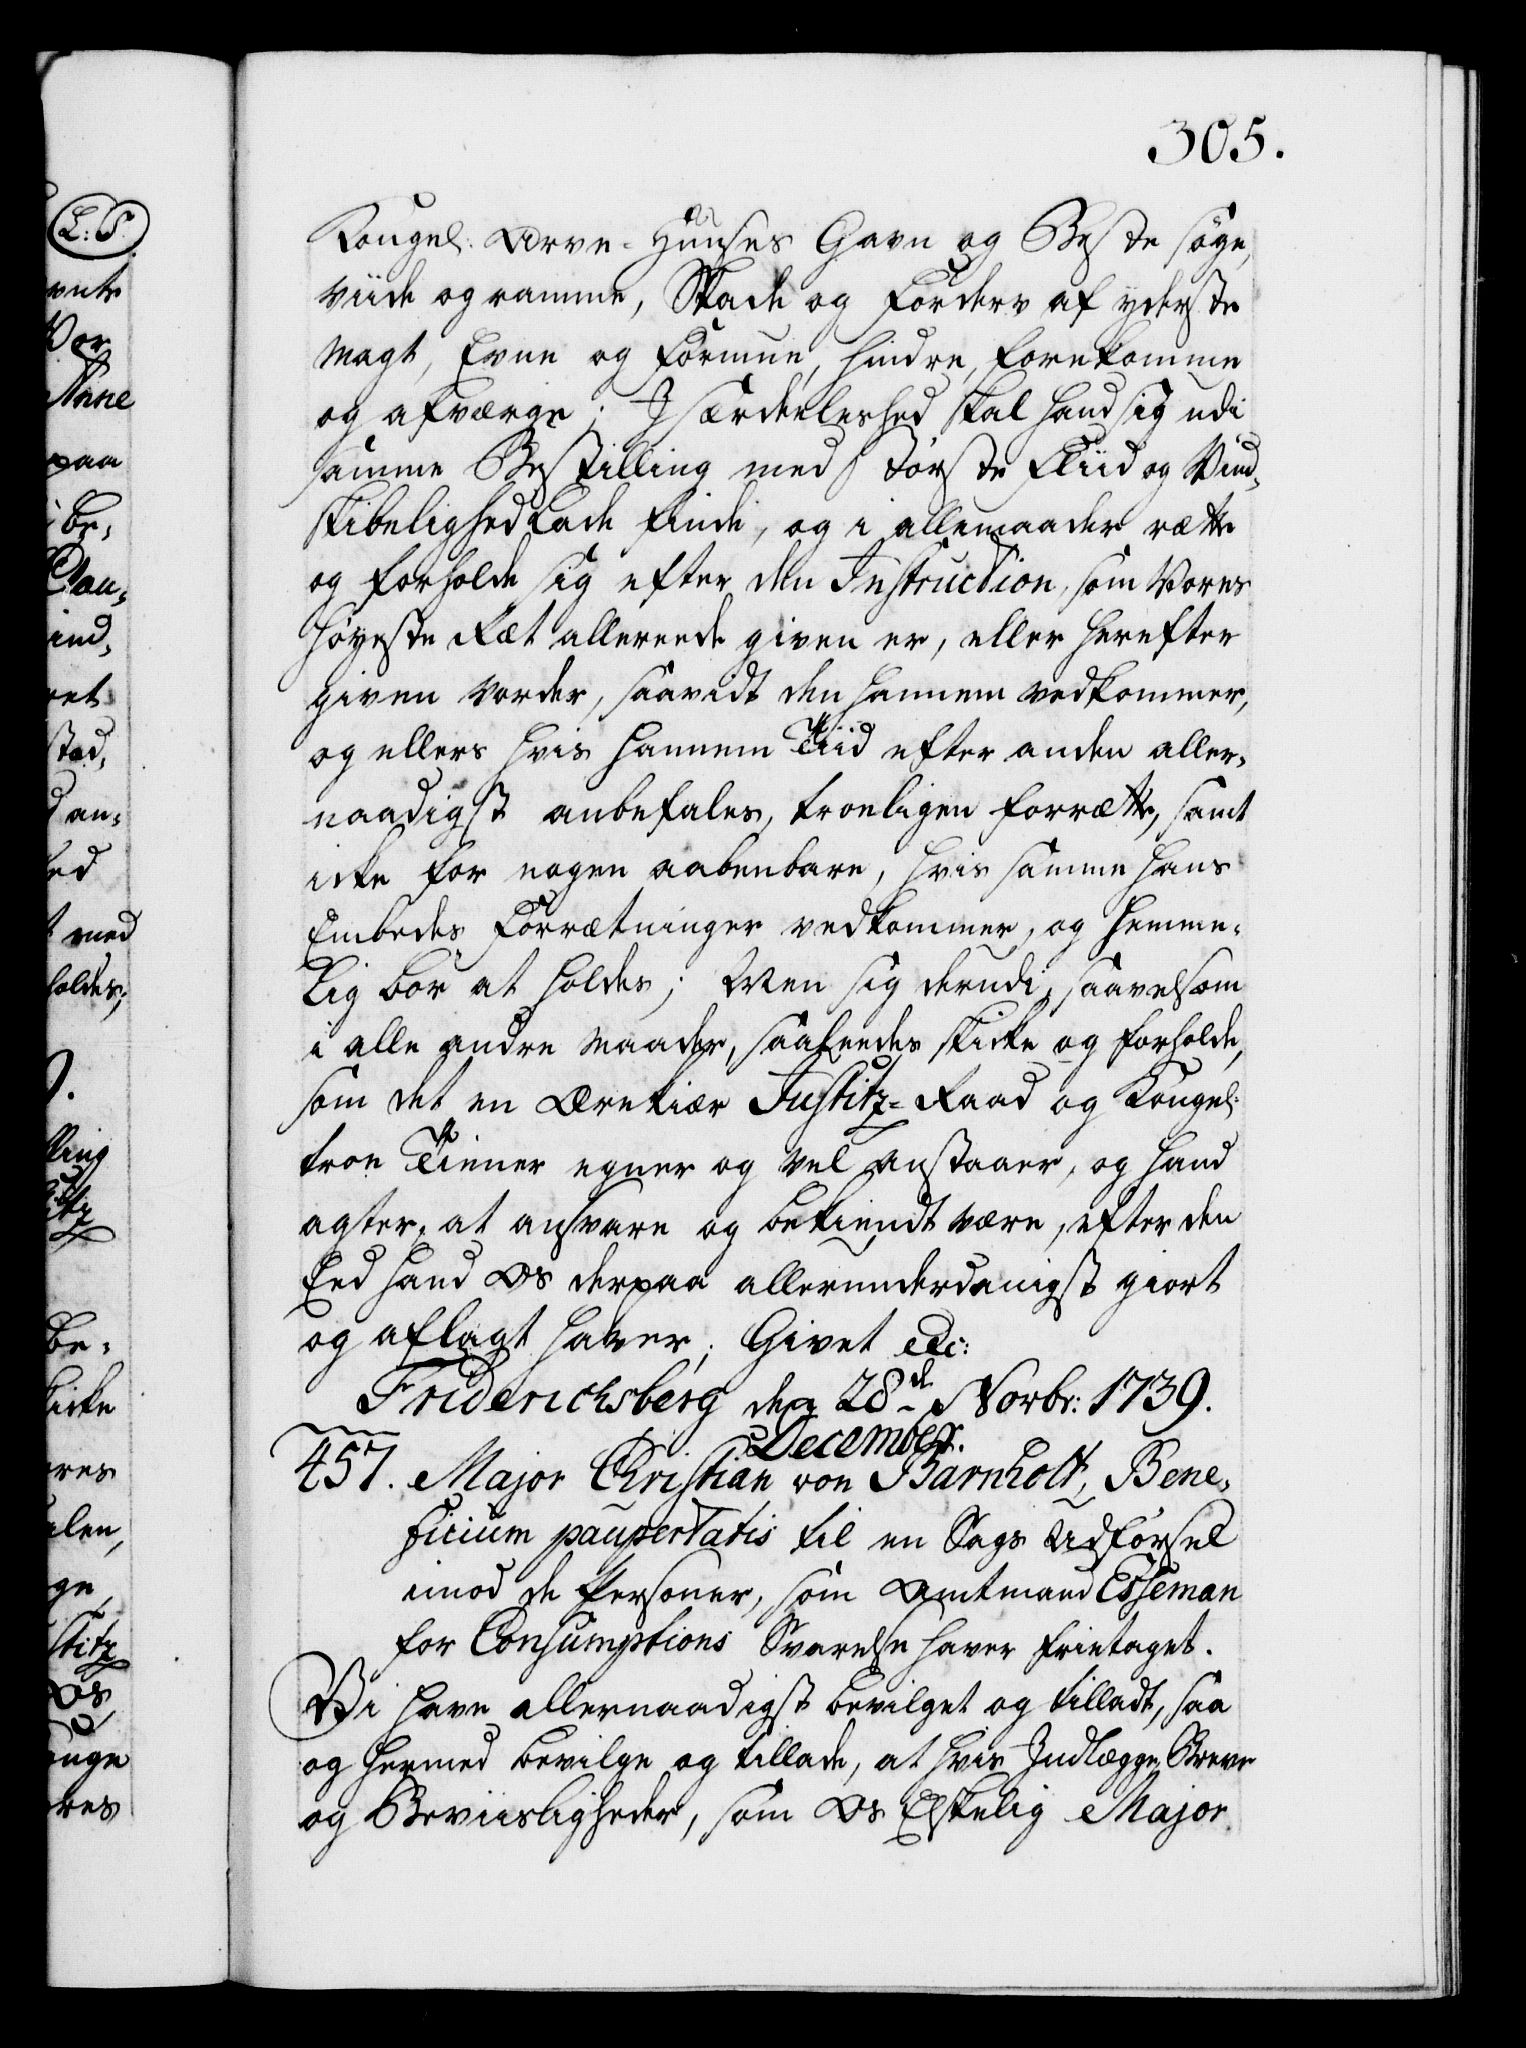 305.
Kongel: Arve-Huuses Gavn og Beste søge,
viide og ramme, Skade og Forderv af yderste
Magt, Evne og Formue, hindre, forekomme
og afværge; I særdeeleshed skal hand sig udi
samme Bestilling med største Fliid og Vind-
skibelighed lade finde, og i allemaader rætte
og forholde sig efter den Instruction, som Vores
Høyeste Ræt allereede given er, eller herefter
given vorder, saavidt den hannem vedkommer,
og ellers hvis hannem Tiid efter anden aller-
naadigst anbefales, troeligen forrætte, samt
icke for nogen aabenbare, hvis samme hans
Embedes Forrætninger vedkommer, og hemme-
lig bør at holdes; Men sig derudi, saavelsom
i alle andre Maader, saaleedes skicke og forholde,
som det en Ærekiær Justitz-Raad og Kongel:
troe Tiener egner og vel anstaaer, og hand
agter, at ansvare og bekiendt være, efter den
Eed hand Os derpaa allerunderdanigst giort
og aflagt haver; Givet etc:
Friderichsberg den 28de Novbr: 1739.
December.
457. Major Christian von Barnholt, Bene-
ficium paupertatis til en Sags Udførsel
imod de Personer, som Amtmand Esseman
for Consumptions Svarelse haver frietaget.
Vi have allernaadigst bevilget og tilladt, saa
og hermed bevilge og tillade, at hvis Indlægge, Breve
og Beviisligheder, som Os Elskelig Major
L: S.
Vor
Anne
paa
be-
ind-
ret
stad,
an-
ed
med
holdes;
ling
titz
be-
icke
res
alen,
ge
stitz
Os
unge
res